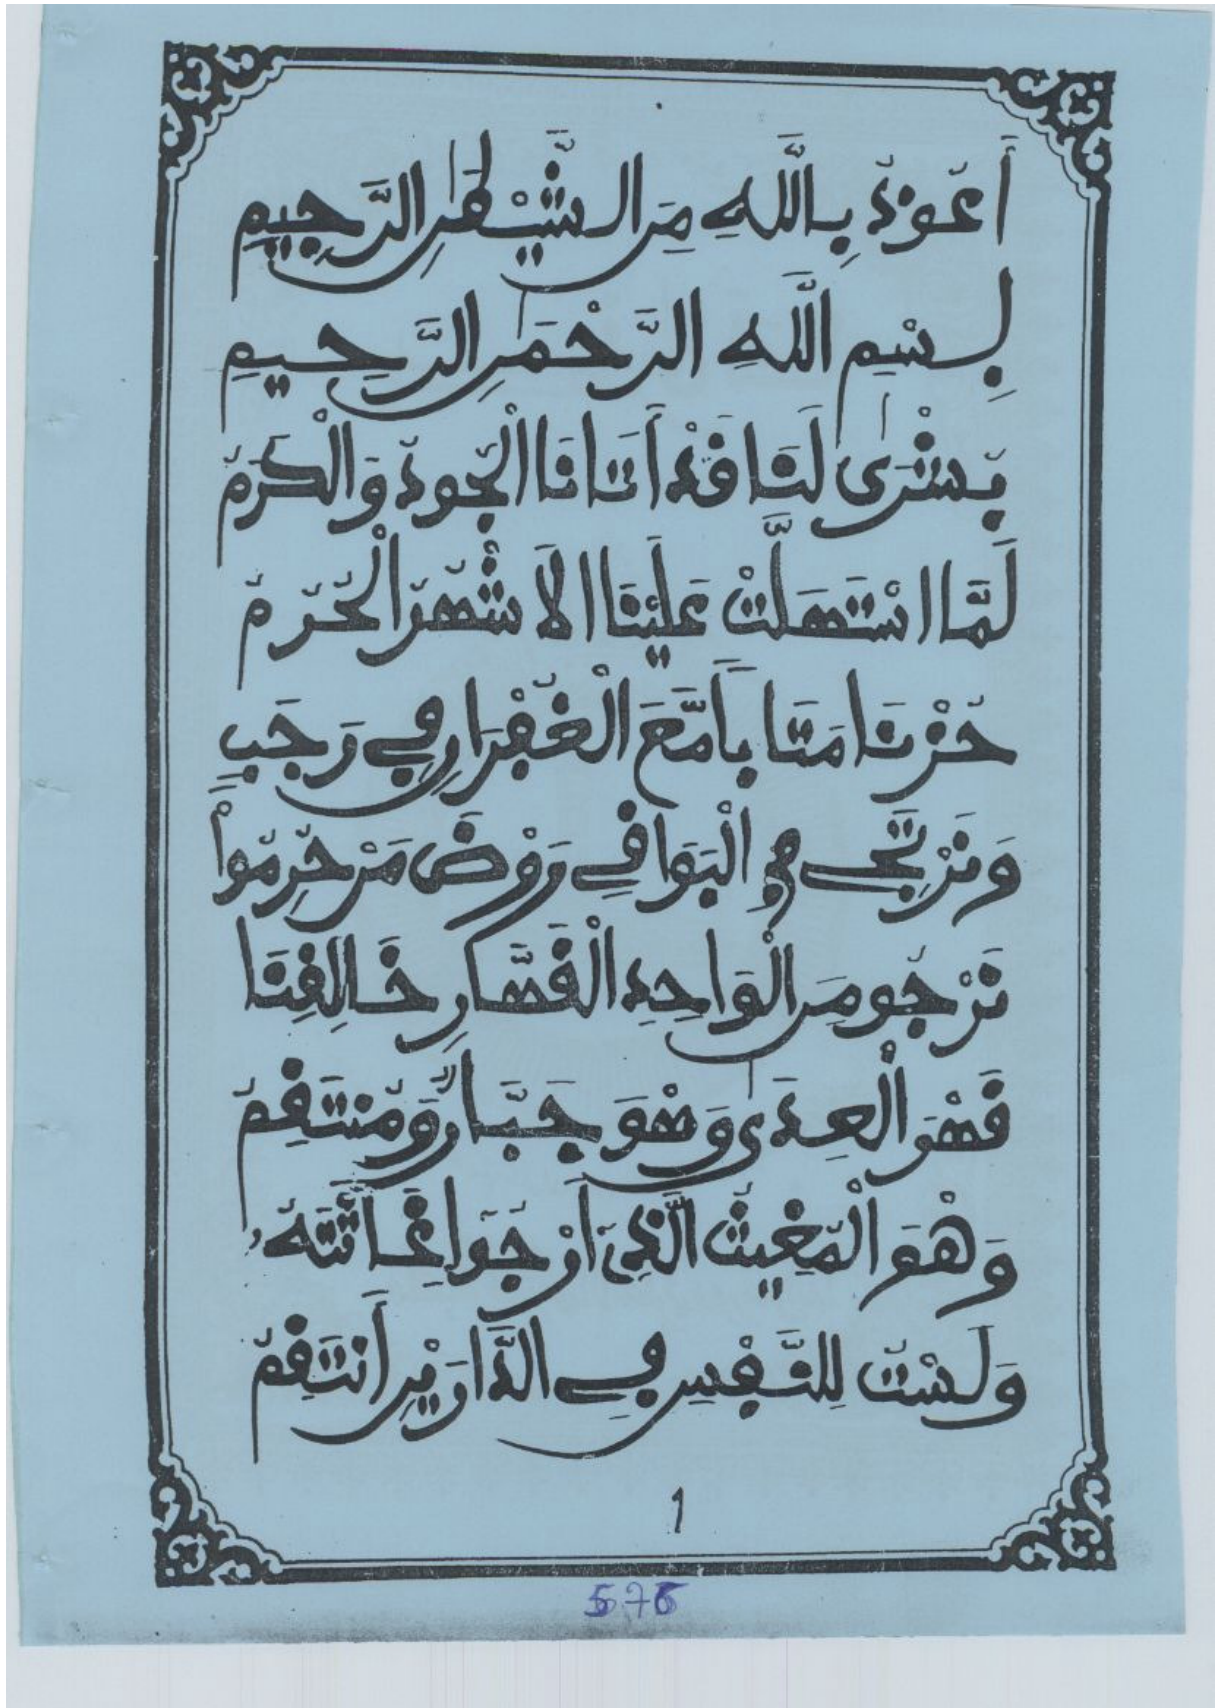 أَعُوذُ بِاللَّهِ مِنَ الشَّيْطَٰنِ الرَّجِيمِ
بِسْمِ اللَّهِ الرَّحْمَٰنِ الرَّحِيمِ
بُشْرَىٰ لَنَا قَدْ أَتَانَا الْجُودُ وَالْكَرَمُ
لَمَّا اسْتَهَلَّتْ عَلَيْنَا الَاشْهُرُ الْحُرُمُ
حُزْنَا مَتَابًا مَّعَ الْغُفْرَانِ فِي رَجَبٍ
وَنَرْتَجِي فِي الْبَوَاقِي رَوْضَ مَنْ حُرِمُواْ
نَرْجُو مِنَ الْوَاحِدِ الْقَهَّارِ خَالِقِنَا
قَهْرَ الْعِدَىٰ وَهْوَ جَبَّارٌ وَمُنتَقِمُ
وَهْوَ الْمُغِيثُ الَّذِي أَرْجُو إِغَاثَتَهُ
وَلَسْتُ لِلنَّفْسِ فِي الدَّارَيْنِ أَنتَقِمُ
1
576